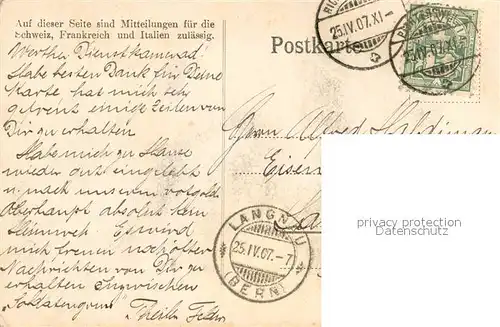 Auf dieser Seite sind Mitteilungen für die
Schweiz, Frankreich und Italien zulässig.
Postkarte
25.IV.07.XI-
25.IV.07.XI
Werther Dienstkamerad!
Habe besten Dank für Deine
Karte hat mich sehr
gefreut einige Zeilen von
Dir zu erhalten
Habe mich zu Hause
wieder gut eingelebt
u. nach unserem
Überhaupt absolut kein
Heimweh. Es wird
mich freuen noch öfter
Nachrichten von Dir zu
erhalten inzwischen
„Soldatengruss"
Herrn Alfred Haldiman
Eisen
La
LANGNAU
25.IV.07.-7
(BERN)
privacy protection